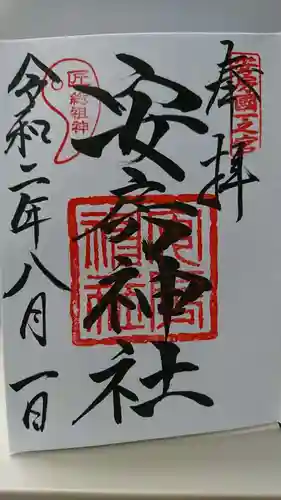 奉拝
安房國一之宮
安房神社
安房
神社
匠総祖神
令和二年八月一日